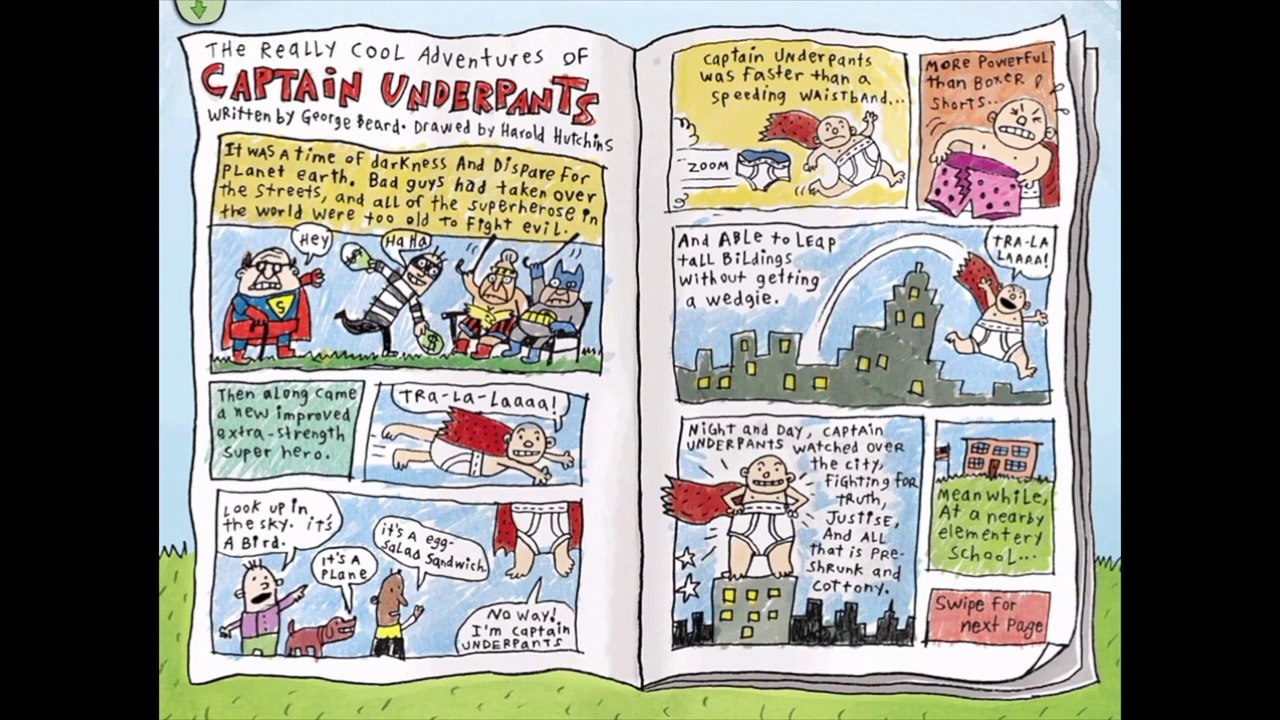 THE REALLY COOL Adventures OF
CAPTAIN UNDERPANTS
WRitten by George Beard. Drawed by Harold Hutchins
It WAS A time of darkness And Dispare For
Planet earth. Bad guys had taken over
the streets, and all of the superherose in
the world were too old to Fight evil.
Hey
HA HA
S
$
Then along came
a new improved
extra-strength
super hero.
TRA-LA-Laaaa!
Look up in
the sky. it's
A Bird.
it's A
PLane
it's a egg-
SaLAD Sandwich.
No way!
I'm captain
UNDERPANTS
Captain Underpants
was Faster than a
speeding WAistbAnd...
ZOOM
MORE Powerful
than BOXER
Shorts...
And ABLe to LEAP
tall BiLdings
without getting
a wedgie.
TRA-LA
LAAAA!
Night and DAy, CAPtAin
UNDERPANTS watched over
the city,
Fighting for
tRuth,
JUStiSE,
And ALL
that is PRe-
Shrunk and
cottony.
Mean while,
At a nearby
elementery
School...
Swipe for
next Page